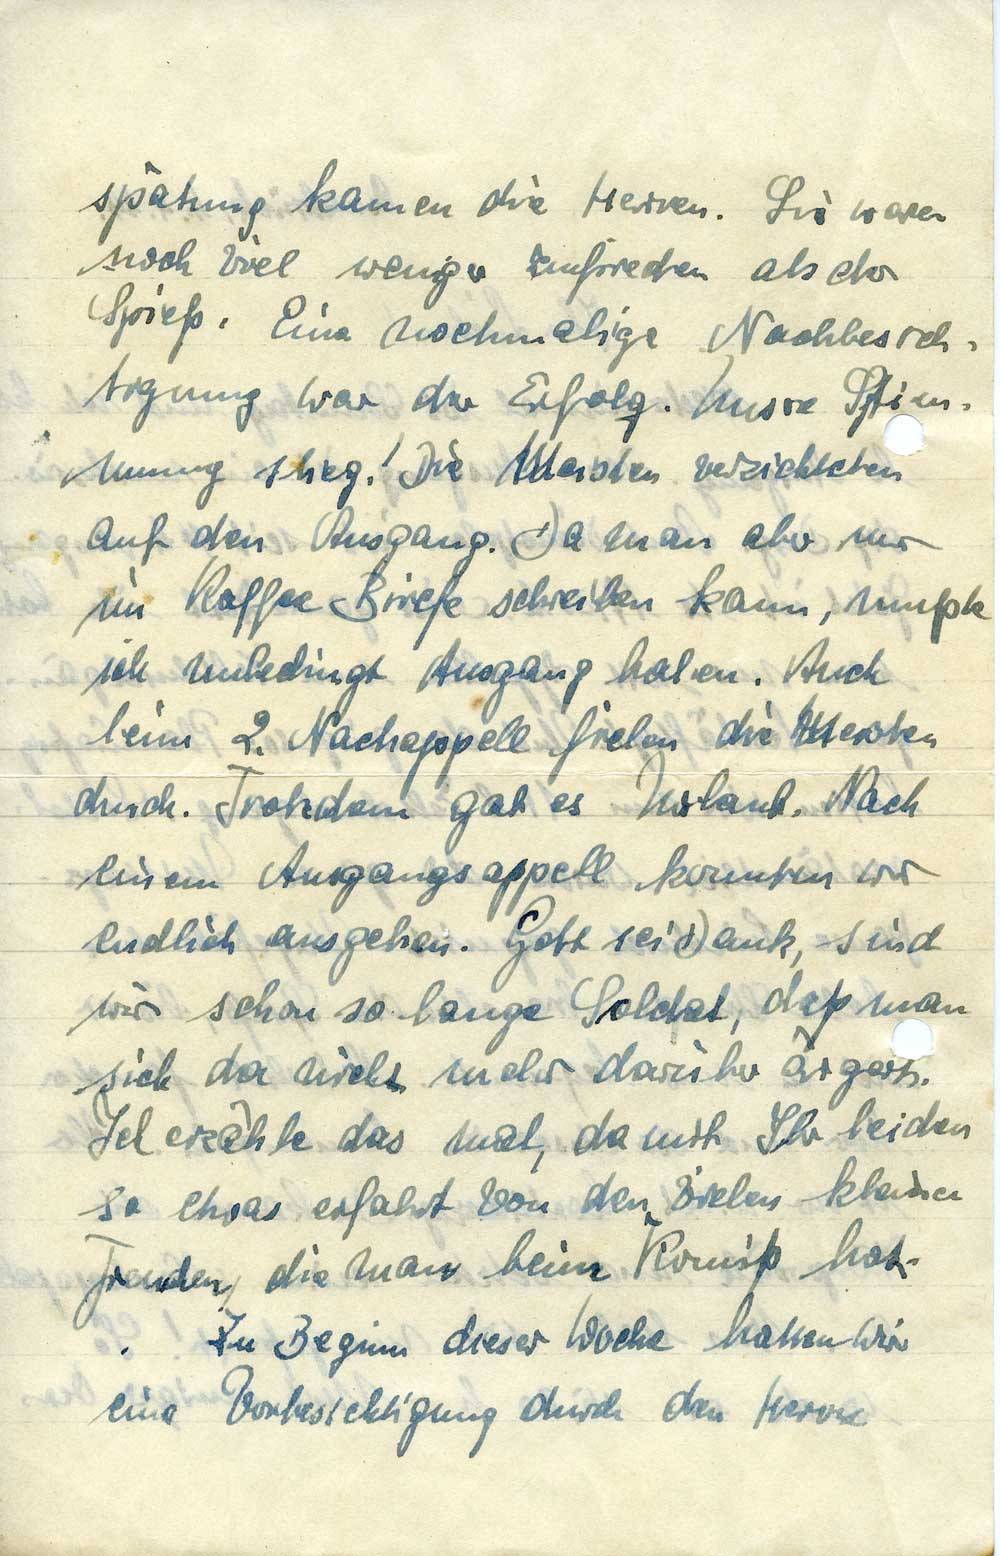 spätung kamen die Herren. Sie waren
noch viel weniger zufrieden als der
Spieß. Eine nochmalige Nachbesich-
tigung war der Erfolg. Unsre Stim-
mung stieg! Die Meisten verzichteten
auf den Ausgang. Da man aber nur
im Kaffee Briefe schreiben kann, mußte
ich unbedingt Ausgang haben. Auch
beim 2. Nachappell fielen die Meisten
durch. Trotzdem gab es Urlaub. Nach
einem Ausgangsappell konnten wir
endlich ausgehen. Gott sei Dank, sind
wir schon so lange Soldat, daß man
sich da nicht mehr darüber ärgert.
Ich erzähle das mal, damit Ihr beiden
so etwas erfahrt von den vielen kleinen
Freuden, die man beim Komiß hat.
Zu Beginn dieser Woche hatten wir
eine Vorbesichtigung durch den Herrn